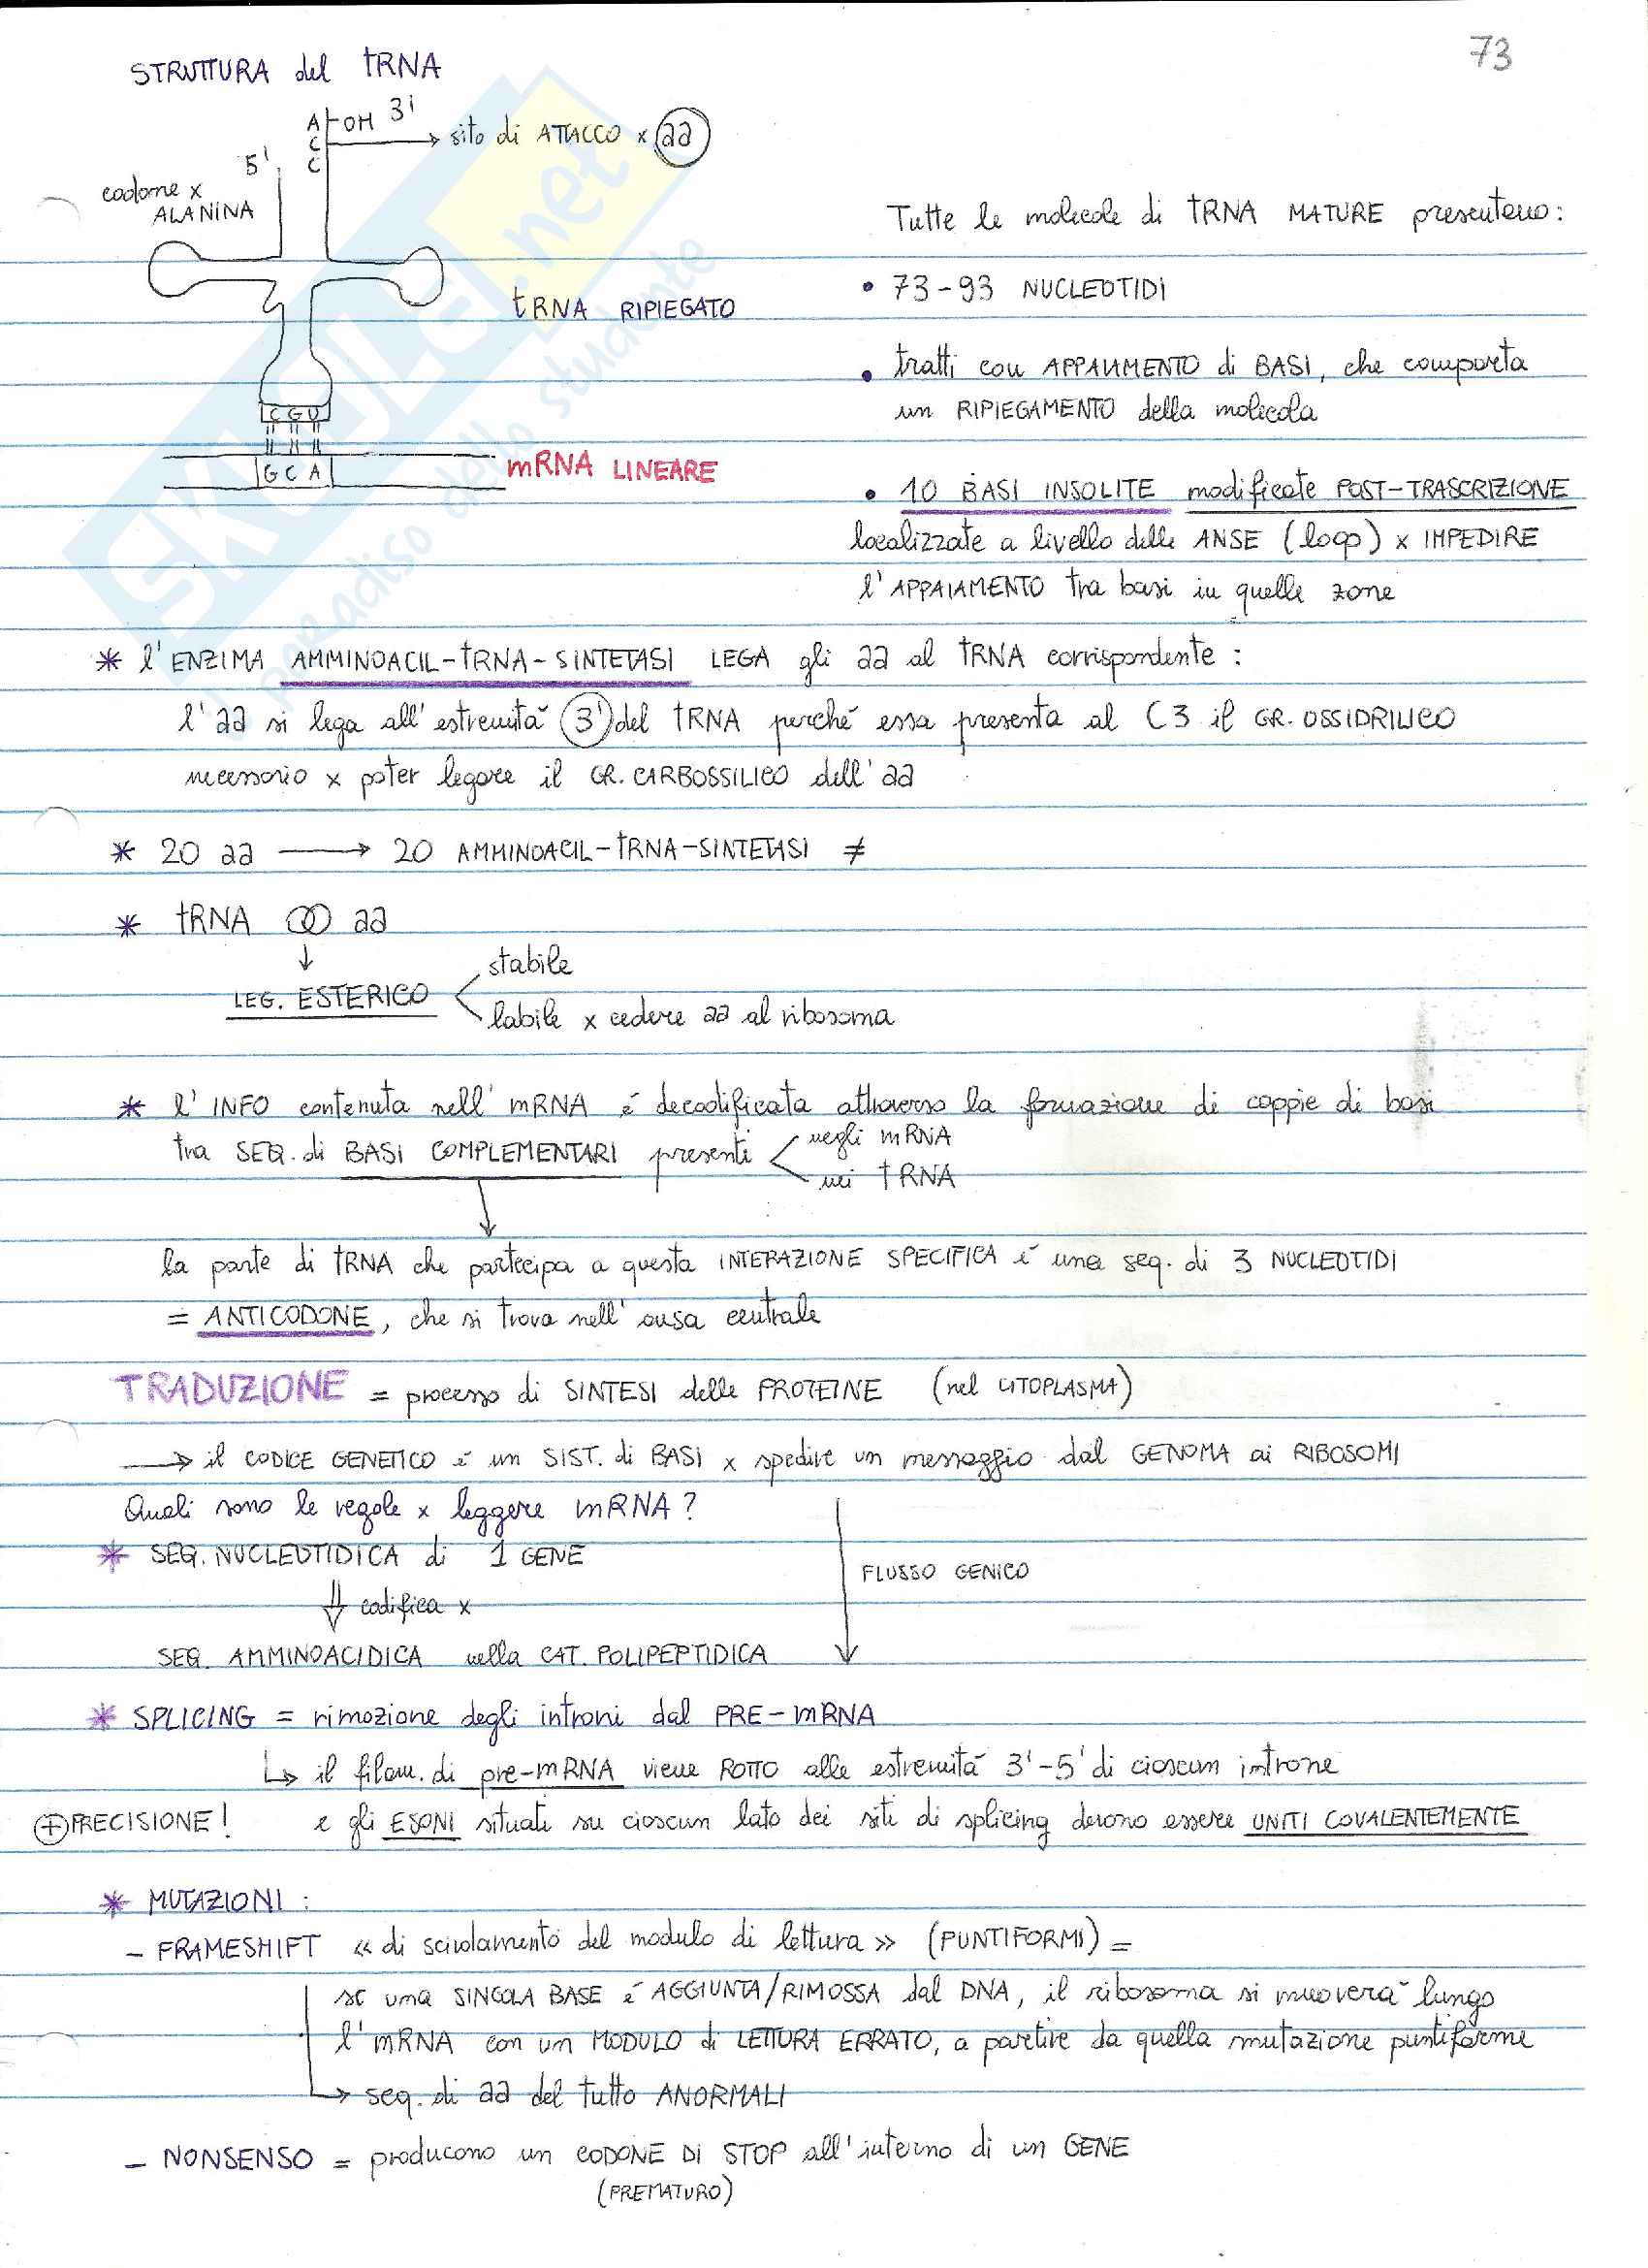 73
STRUTTURA del tRNA
A
C
C
OH 3'
→ sito di ATTACCO x aa
5'
codone x
ALANINA
tRNA RIPIEGATO
C G U
G C A
mRNA LINEARE
Tutte le molecole di tRNA MATURE presentano:
• 73-93 NUCLEOTIDI
• tratti con APPAIAMENTO di BASI, che comporta
un RIPIEGAMENTO della molecola
• 10 BASI INSOLITE modificate POST-TRASCRIZIONE
localizzate a livello delle ANSE (loop) x IMPEDIRE
l'APPAIAMENTO tra basi in quelle zone
SKUOLA.net
il paradiso dello studente
* l'ENZIMA AMMINOACIL-tRNA-SINTETASI LEGA gli aa al tRNA corrispondente:
l'aa si lega all'estremità 3' del tRNA perché essa presenta al C3 il GR. OSSIDRILICO
necessario x poter legare il GR. CARBOSSILICO dell'aa
* 20 aa → 20 AMMINOACIL-tRNA-SINTETASI ≠
* tRNA aa
↓
LEG. ESTERICO < stabile
labile x cedere aa al ribosoma
* l'INFO contenuta nell'mRNA é decodificata attraverso la formazione di coppie di basi
tra SEQ. di BASI COMPLEMENTARI presenti < negli mRNA
nei tRNA
la parte di tRNA che partecipa a questa INTERAZIONE SPECIFICA é una seq. di 3 NUCLEOTIDI
= ANTICODONE, che si trova nell'ansa centrale
TRADUZIONE = processo di SINTESI delle PROTEINE (nel CITOPLASMA)
→ il CODICE GENETICO é un SIST. di BASI x spedire un messaggio dal GENOMA ai RIBOSOMI
Quali sono le regole x leggere mRNA?
* SEQ. NUCLEOTIDICA di 1 GENE
⇓ codifica x
SEQ. AMMINOACIDICA nella CAT. POLIPEPTIDICA
FLUSSO GENICO
* SPLICING = rimozione degli introni dal PRE-mRNA
↳ il filam. di pre-mRNA viene ROTTO alle estremità 3'-5' di ciascun introne
⊕ PRECISIONE! e gli ESONI situati su ciascun lato dei siti di splicing devono essere UNITI COVALENTEMENTE
* MUTAZIONI:
- FRAMESHIFT «di scivolamento del modulo di lettura» (PUNTIFORMI) =
se una SINGOLA BASE é AGGIUNTA/RIMOSSA dal DNA, il ribosoma si muoverà lungo
l'mRNA con un MODULO di LETTURA ERRATO, a partire da quella mutazione puntiforme
↳ seq. di aa del tutto ANORMALI
- NONSENSO = producono un CODONE DI STOP all'interno di un GENE
(PREMATURO)